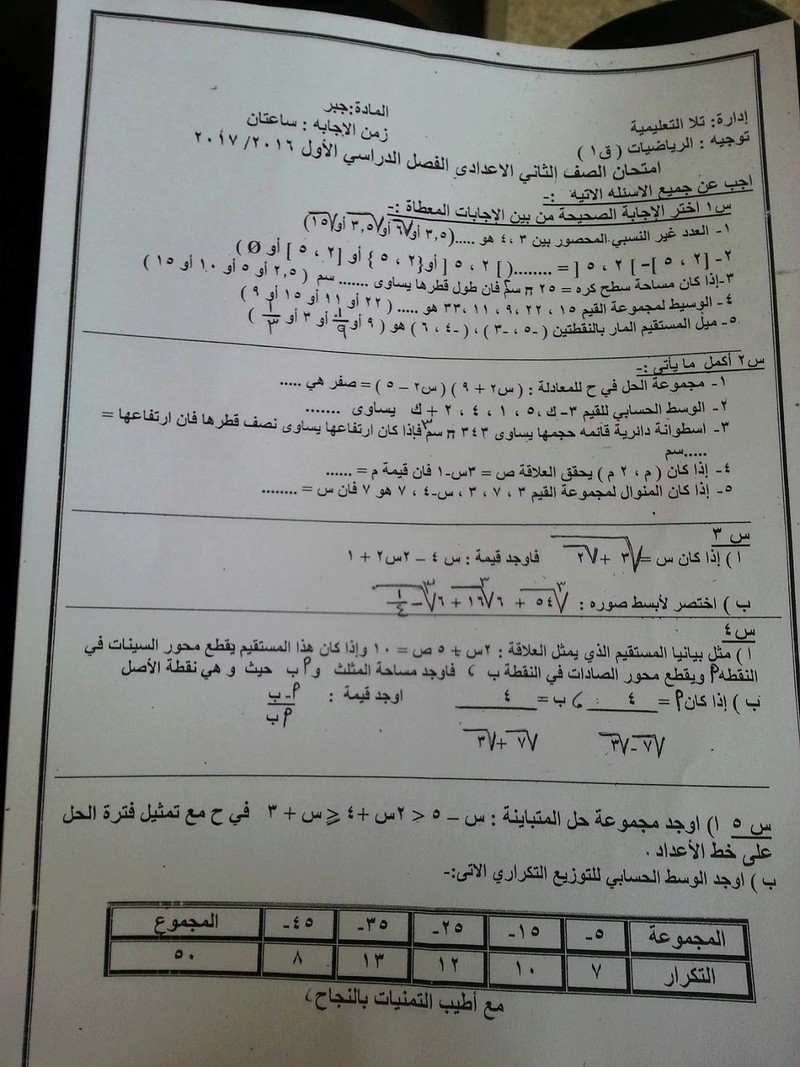 إدارة: تلا التعليمية
المادة:جبر
توجيه : الرياضيات ( ق١ )
زمن الإجابه : ساعتان
امتحان الصف الثاني الاعدادى الفصل الدراسي الأول ٢٠١٦/ ٢٠١٧
اجب عن جميع الاسئله الاتيه :-
س١ اختر الإجابة الصحيحة من بين الإجابات المعطاة :-
١- العدد غير النسبي المحصور بين ٣ ،٤ هو .....(٣,٥ أو √٦ أو √٣,٥ أو √١٥)
٢- [٢ ، ٥ ]–] ٢ ، ٥ [ = ........( ] ٢ ، ٥ [ أو{٢ ، ٥ } أو [٢ ، ٥ ] أو Ø )
٣-إذا كان مساحة سطح كره = ٢٥ π سم٢ فان طول قطرها يساوى ....... سم ( ٢,٥ أو ٥ أو ١٠ أو ١٥ )
٤- الوسيط لمجموعة القيم ١٥ ، ٢٢ ،٩ ، ١١ ،٣٣ هو ..... ( ٢٢ أو ١١ أو ١٥ أو ٩ )
٥- ميل المستقيم المار بالنقطتين ( -٥ ، -٣ ) ، ( -٤ ، ٦ ) هو ( ٩ أو ١/٩ أو ٣ أو ١/٣ )
س٢ أكمل ما يأتى :-
١- مجموعة الحل في ح للمعادلة : ( س٢ + ٩ ) ( س٢ – ٥ ) = صفر هي .....
٢- الوسط الحسابي للقيم ٣- ك ،٥ ، ١ ، ٤ ، ٢ + ك يساوى .......
٣- اسطوانة دائرية قائمه حجمها يساوى ٣٤٣ π سم٣ فإذا كان ارتفاعها يساوى نصف قطرها فان ارتفاعها =
.....سم
٤- إذا كان ( م ، ٢ م ) يحقق العلاقة ص = ٣س-١ فان قيمة م = ......
٥- إذا كان المنوال لمجموعة القيم ٣ ، ٧ ، ٣ ، س-٤ ، ٧ هو ٧ فان س = ........
س ٣
ا ) إذا كان س = √٣ + √٢ فاوجد قيمة : س ٤ – ٢س٢ + ١
ب ) اختصر لأبسط صوره : ∛٥٤ + ٦∛١٦ + ٦∛-١/٤
س٤
ا ) مثل بيانيا المستقيم الذي يمثل العلاقة : ٢س + ٥ ص = ١٠ وإذا كان هذا المستقيم يقطع محور السينات في
النقطة أ ويقطع محور الصادات في النقطة ب ، فاوجد مساحة المثلث و أ ب حيث و هي نقطة الأصل
ب ) إذا كان أ = ٤/(√٧-√٣) ، ب = ٤/(√٧+√٣) اوجد قيمة : أ-ب/أب
س ٥ ا) اوجد مجموعة حل المتباينة : س – ٥ < ٢س +٤ ≤ س + ٣ في ح مع تمثيل فترة الحل
على خط الأعداد .
ب ) اوجد الوسط الحسابي للتوزيع التكراري الاتى:-
المجموعة ٥- ١٥- ٢٥- ٣٥- ٤٥- المجموع
التكرار ٧ ١٠ ١٢ ١٣ ٨ ٥٠
مع أطيب التمنيات بالنجاح،